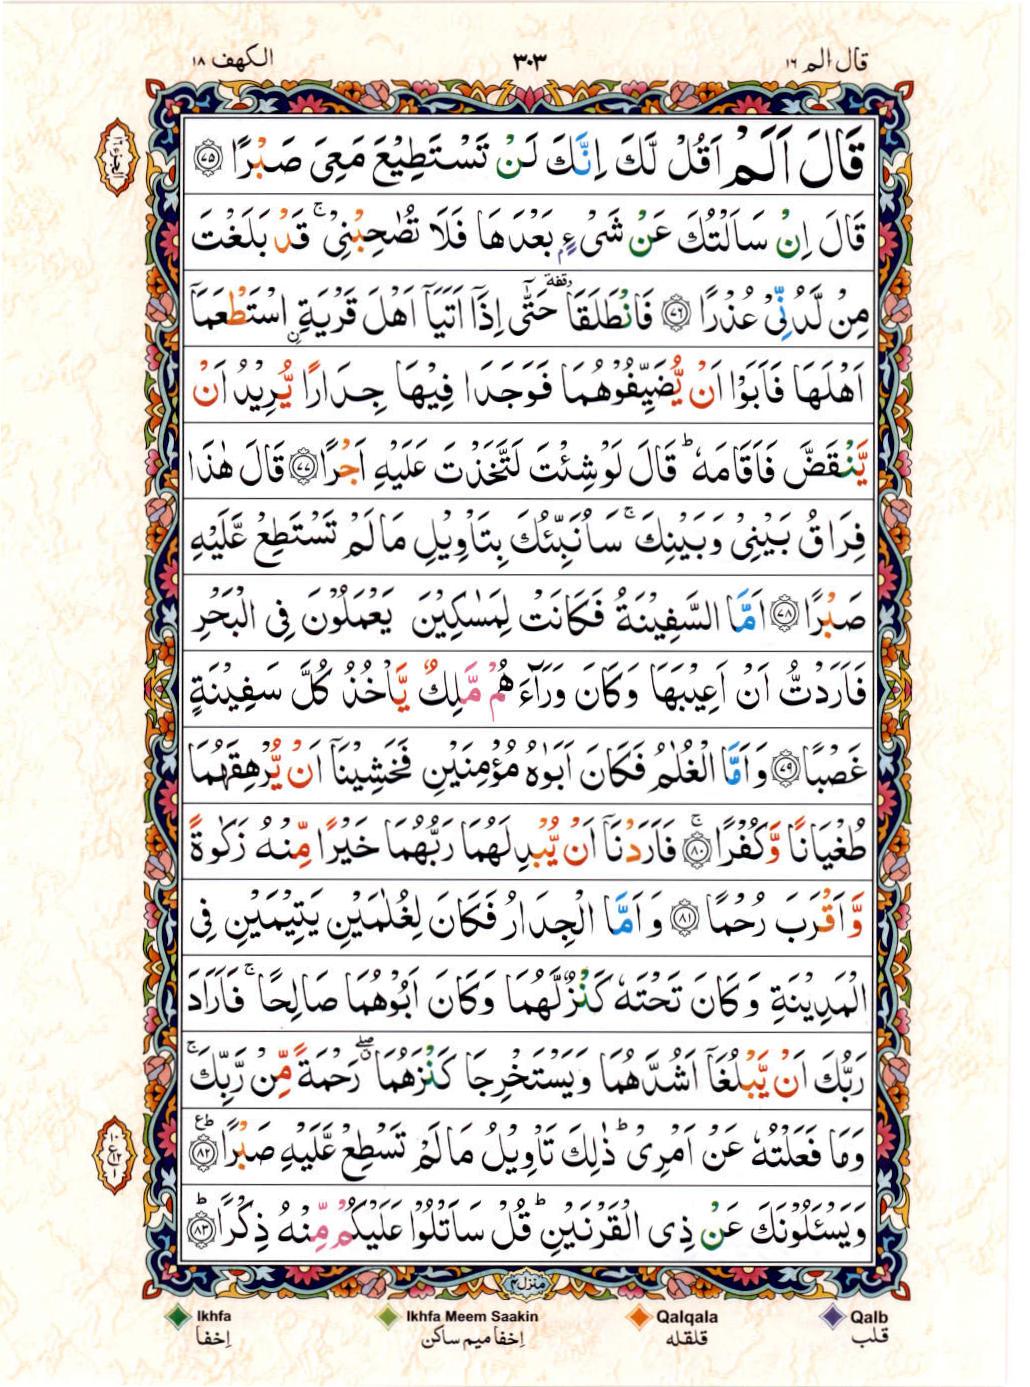 قال الم ١٦
٣٠٣
الكهف ١٨
قَالَ اَلَمْ اَقُلْ لَّكَ اِنَّكَ لَنْ تَسْتَطِيْعَ مَعِىَ صَبْرًا ﴿٧٥﴾
قَالَ اِنْ سَاَلْتُكَ عَنْ شَىْءٍۭ بَعْدَهَا فَلَا تُصٰحِبْنِىْ ۚ قَدْ بَلَغْتَ
مِنْ لَّدُنِّىْ عُذْرًا ﴿٧٦﴾ فَانْطَلَقَا ۥوقفة حَتّٰٓى اِذَاۤ اَتَيَاۤ اَهْلَ قَرْيَةِ ۨاسْتَطْعَمَاۤ
اَهْلَهَا فَاَبَوْا اَنْ يُّضَيِّفُوْهُمَا فَوَجَدَا فِيْهَا جِدَارًا يُّرِيْدُ اَنْ
يَّنْقَضَّ فَاَقَامَهٗ ؕ قَالَ لَوْ شِئْتَ لَتَّخَذْتَ عَلَيْهِ اَجْرًا ﴿٧٧﴾ قَالَ هٰذَا
فِرَاقُ بَيْنِىْ وَبَيْنِكَ ۚ سَاُنَبِّئُكَ بِتَاْوِيْلِ مَا لَمْ تَسْتَطِعْ عَّلَيْهِ
صَبْرًا ﴿٧٨﴾ اَمَّا السَّفِيْنَةُ فَكَانَتْ لِمَسٰكِيْنَ يَعْمَلُوْنَ فِى الْبَحْرِ
فَاَرَدْتُّ اَنْ اَعِيْبَهَا وَكَانَ وَرَآءَ هُمْ مَّلِكٌ يَّاْخُذُ كُلَّ سَفِيْنَةٍ
غَصْبًا ﴿٧٩﴾ وَاَمَّا الْغُلٰمُ فَكَانَ اَبَوٰهُ مُؤْمِنَيْنِ فَخَشِيْنَاۤ اَنْ يُّرْهِقَهُمَا
طُغْيَانًا وَّكُفْرًا ۚ ﴿٨٠﴾ فَاَرَدْنَاۤ اَنْ يُّبْدِلَهُمَا رَبُّهُمَا خَيْرًا مِّنْهُ زَكٰوةً
وَّاَقْرَبَ رُحْمًا ﴿٨١﴾ وَاَمَّا الْجِدَارُ فَكَانَ لِغُلٰمَيْنِ يَتِيْمَيْنِ فِى
الْمَدِيْنَةِ وَكَانَ تَحْتَهٗ كَنْزٌ لَّهُمَا وَكَانَ اَبُوْهُمَا صَالِحًا ۚ فَاَرَادَ
رَبُّكَ اَنْ يَّبْلُغَاۤ اَشُدَّهُمَا وَيَسْتَخْرِجَا كَنْزَهُمَا ۖ رَحْمَةً مِّنْ رَّبِّكَ ۚ
وَمَا فَعَلْتُهٗ عَنْ اَمْرِىْ ؕ ذٰلِكَ تَاْوِيْلُ مَا لَمْ تَسْطِعْ عَّلَيْهِ صَبْرًا ؕ ﴿٨٢﴾
وَيَسْـَٔلُوْنَكَ عَنْ ذِى الْقَرْنَيْنِ ؕ قُلْ سَاَتْلُوْا عَلَيْكُمْ مِّنْهُ ذِكْرًا ؕ ﴿٨٣﴾
منزل ۴
Ikhfa
Ikhfa Meem Saakin
Qalqala
Qalb
اِخفا
اِخفا ميم ساكن
قلقله
قلب